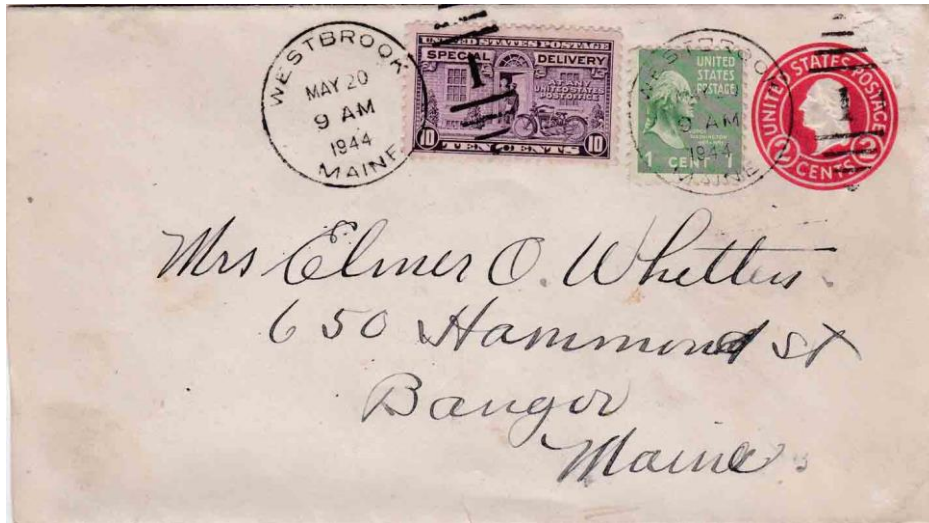 WESTBROOK
MAY 20
9 AM
1944
MAINE
UNITED STATES POSTAGE
SPECIAL DELIVERY
AT ANY
UNITED STATES
POST OFFICE
10 TEN CENTS 10
UNITED
STATES
POSTAGE
1 CENT 1
WESTBROOK
9 AM
1944
MAINE
UNITED STATES POSTAGE
2 CENTS 2
1
1
Mrs Elmer O.
650 Hammond St
Bangor
Maine